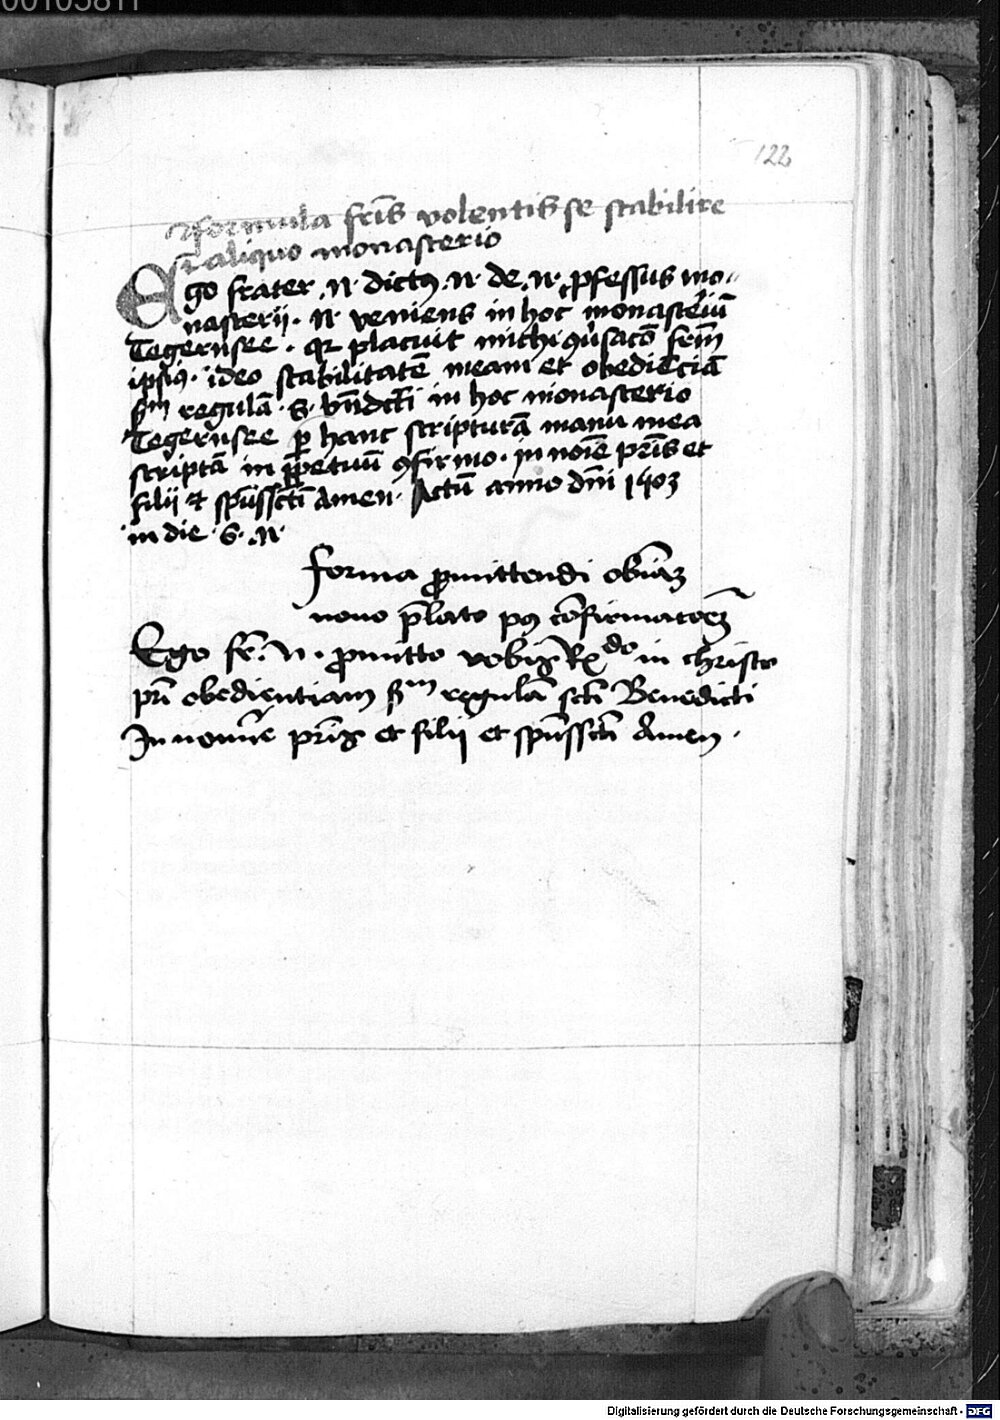 00105811
122
Formula fr̄is volentis se stabilire
ī aliquo monasterio
Ego frater .N. dictꝰ .N. de .N. ꝓfessus mo-
nasterij . N. veniens in hoc monasteriū
Tegernsee . qꝛ placuit michi ꝯūsacō fr̄m
ipsiꝰ . ideo stabilitatē meam et obediēciā
ẜm regulā . S. bn̄dicti in hoc monasterio
Tegernsee ꝑ hanc scripturā manu mea
scriptā in ꝑpetuū ꝯfirmo . in noīe pr̄is et
filii ⁊ spūssctī Amen . Actū anno dn̄i 1403
in die . S. N.
Forma ꝓmittendi obīam
nouo p̄lato pꝰ cōfirmacoēm
Ego fr̄. N. ꝓmitto vobis Rdo in christo
pr̄i obedientiam ẜm regulā sctī Benedicti
In nomīe pr̄is et filij et spūssctī Amen .
Digitalisierung gefördert durch die Deutsche Forschungsgemeinschaft - DFG